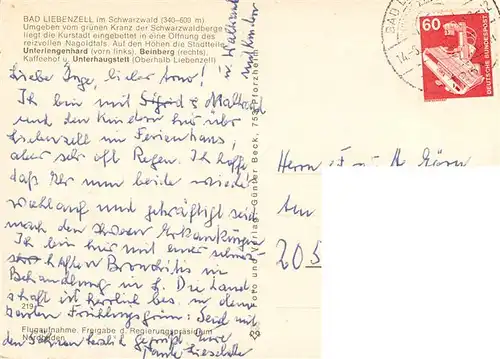 BAD LIEBENZELL im Schwarzwald (340-600 m)
Umgeben vom grünen Kranz der Schwarzwaldberge
liegt die Kurstadt eingebettet in eine Öffnung des
reizvollen Nagoldtals. Auf den Höhen die Stadtteile
Unterlengenhardt (vorn links), Beinberg (rechts),
Kaffeehof u. Unterhaugstett (Oberhalb Liebenzell)
Liebe Inge, lieber Arno!
Ich bin mit Sigrid & Maltraud
und den Kindern hier über
Liebenzell im Ferienhaus,
aber sehr oft Regen. Ich hoffe
daß Ihr nun beide wieder
wohlauf und gekräftigt seid
nach den schweren Erkrankungen
Ich bin hier mit einer
haften Bronchitis in
Behandlung. Die Land
schaft ist herrlich bes. in dem
zarten Frühlingsgrün. Seid mit
den Söhnen herzlich gegrüßt Eure
Tante Lieselotte
219
Flugaufnahme. Freigabe d. Regierungspräsidium
Nordbaden
Foto und Verlag Günter Beck, 753 Pforzheim
60
DEUTSCHE BUNDESPOST
BAD LIE
14.-6
Herrn u
Am
205